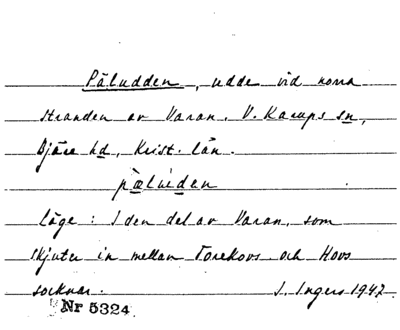 Påludden, udde vid norra
stranden av Varan. V. Karups sn,
Bjäre hd, Krist. län.
pæluden
Läge: I den del av Varan, som
skjuter in mellan Torekovs och Hovs
socknar. I. Ingers 1942
Nr 5324